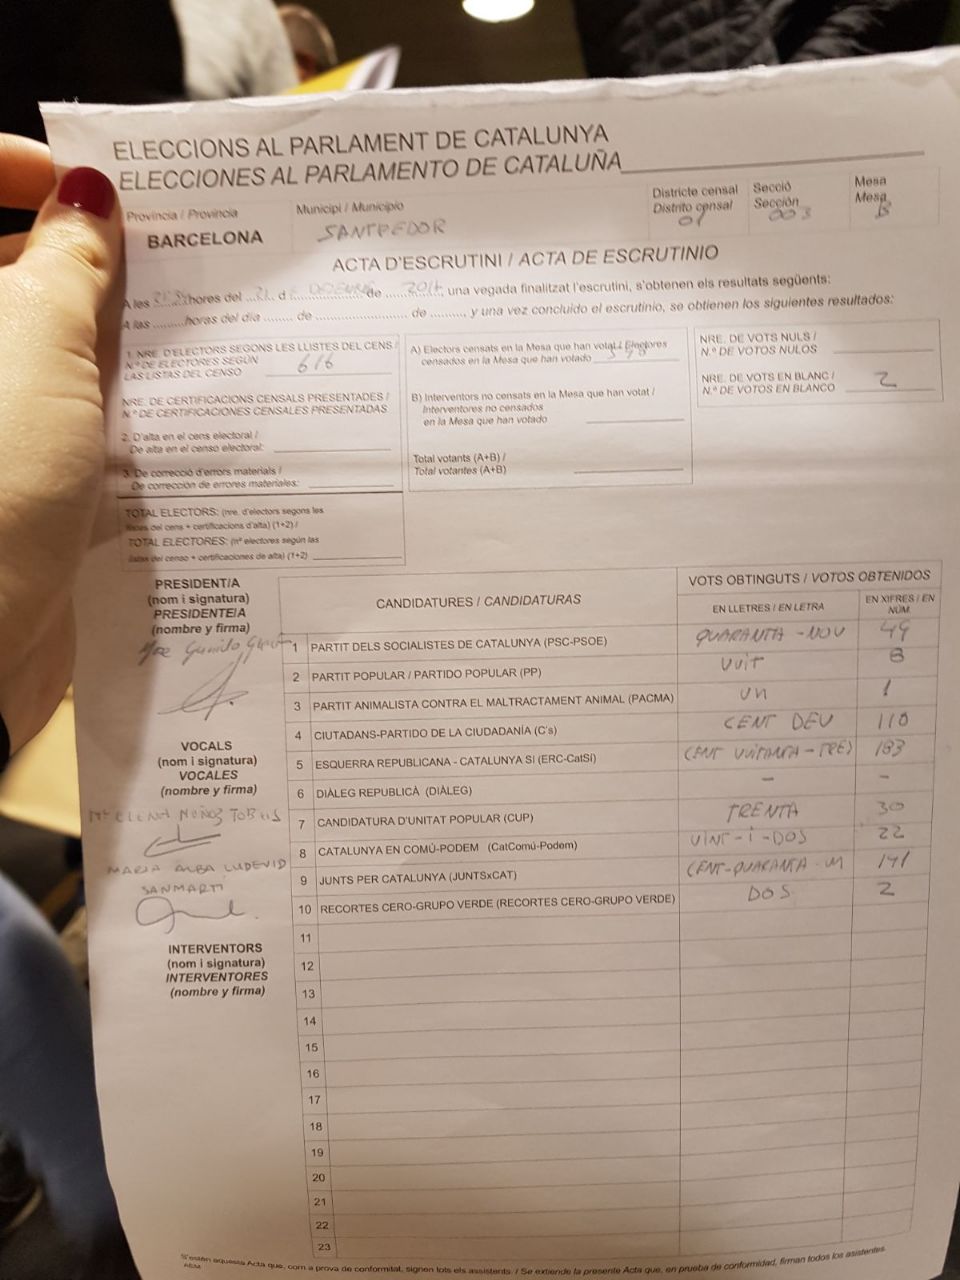 ELECCIONS AL PARLAMENT DE CATALUNYA
ELECCIONES AL PARLAMENTO DE CATALUÑA
Província / Provincia
BARCELONA
Municipi / Municipio
SANTPEDOR
Districte censal
Distrito censal
01
Secció
Sección
003
Mesa
Mesa
B
ACTA D'ESCRUTINI / ACTA DE ESCRUTINIO
A les ........hores del ........ d ........ de ........, una vegada finalitzat l'escrutini, s'obtenen els resultats següents:
A las .........horas del día ........ de ........................ de ........., y una vez concluido el escrutinio, se obtienen los siguientes resultados:
1. NRE. D'ELECTORS SEGONS LES LLISTES DEL CENS /
N.º DE ELECTORES SEGÚN
LAS LISTAS DEL CENSO 616
NRE. DE CERTIFICACIONS CENSALS PRESENTADES /
N.º DE CERTIFICACIONES CENSALES PRESENTADAS
2. D'alta en el cens electoral /
De alta en el censo electoral:
3. De correcció d'errors materials /
De corrección de errores materiales:
TOTAL ELECTORS: (nre. d'electors segons les
llistes del cens + certificacions d'alta) (1+2) /
TOTAL ELECTORES: (nº electores según las
listas del censo + certificaciones de alta) (1+2)
A) Electors censats en la Mesa que han votat / Electores
censados en la Mesa que han votado
B) Interventors no censats en la Mesa que han votat /
Interventores no censados
en la Mesa que han votado
Total votants (A+B) /
Total votantes (A+B)
NRE. DE VOTS NULS /
N.º DE VOTOS NULOS
NRE. DE VOTS EN BLANC /
N.º DE VOTOS EN BLANCO 2
PRESIDENT/A
(nom i signatura)
PRESIDENTE/A
(nombre y firma)
VOCALS
(nom i signatura)
VOCALES
(nombre y firma)
Mª ELENA MUÑOZ TOBUS
MARIA ALBA LUDEVID
SANMARTÍ
INTERVENTORS
(nom i signatura)
INTERVENTORES
(nombre y firma)
CANDIDATURES / CANDIDATURAS
VOTS OBTINGUTS / VOTOS OBTENIDOS
EN LLETRES / EN LETRA
EN XIFRES / EN NÚM.
1 PARTIT DELS SOCIALISTES DE CATALUNYA (PSC-PSOE) QUARANTA-NOU 49
2 PARTIT POPULAR / PARTIDO POPULAR (PP) VUIT 8
3 PARTIT ANIMALISTA CONTRA EL MALTRACTAMENT ANIMAL (PACMA) UN 1
4 CIUTADANS-PARTIDO DE LA CIUDADANÍA (C's) CENT DEU 110
5 ESQUERRA REPUBLICANA - CATALUNYA SÍ (ERC-CatSí) CENT VUITANTA-TRES 183
6 DIÀLEG REPUBLICÀ (DIÀLEG) - -
7 CANDIDATURA D'UNITAT POPULAR (CUP) TRENTA 30
8 CATALUNYA EN COMÚ-PODEM (CatComú-Podem) VINT-I-DOS 22
9 JUNTS PER CATALUNYA (JUNTSxCAT) CENT-QUARANTA-UN 141
10 RECORTES CERO-GRUPO VERDE (RECORTES CERO-GRUPO VERDE) DOS 2
11
12
13
14
15
16
17
18
19
20
21
22
23
S'estén aquesta Acta que, com a prova de conformitat, signen tots els assistents. / Se extiende la presente Acta que, en prueba de conformidad, firman todos los asistentes.